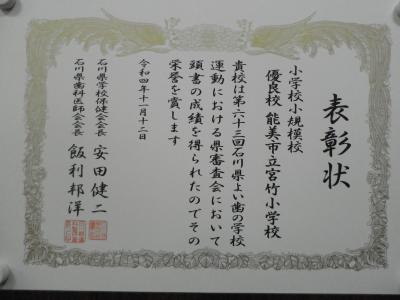 表彰状
小学校小規模校
優良校 能美市立宮竹小学校
貴校は第六十三回石川県よい歯の学校
運動における県審査会において
頭書の成績を得られたのでその
栄誉を賞します
令和四年十一月十二日
石川県学校保健会会長 安田健二
石川県歯科医師会会長 飯利邦洋